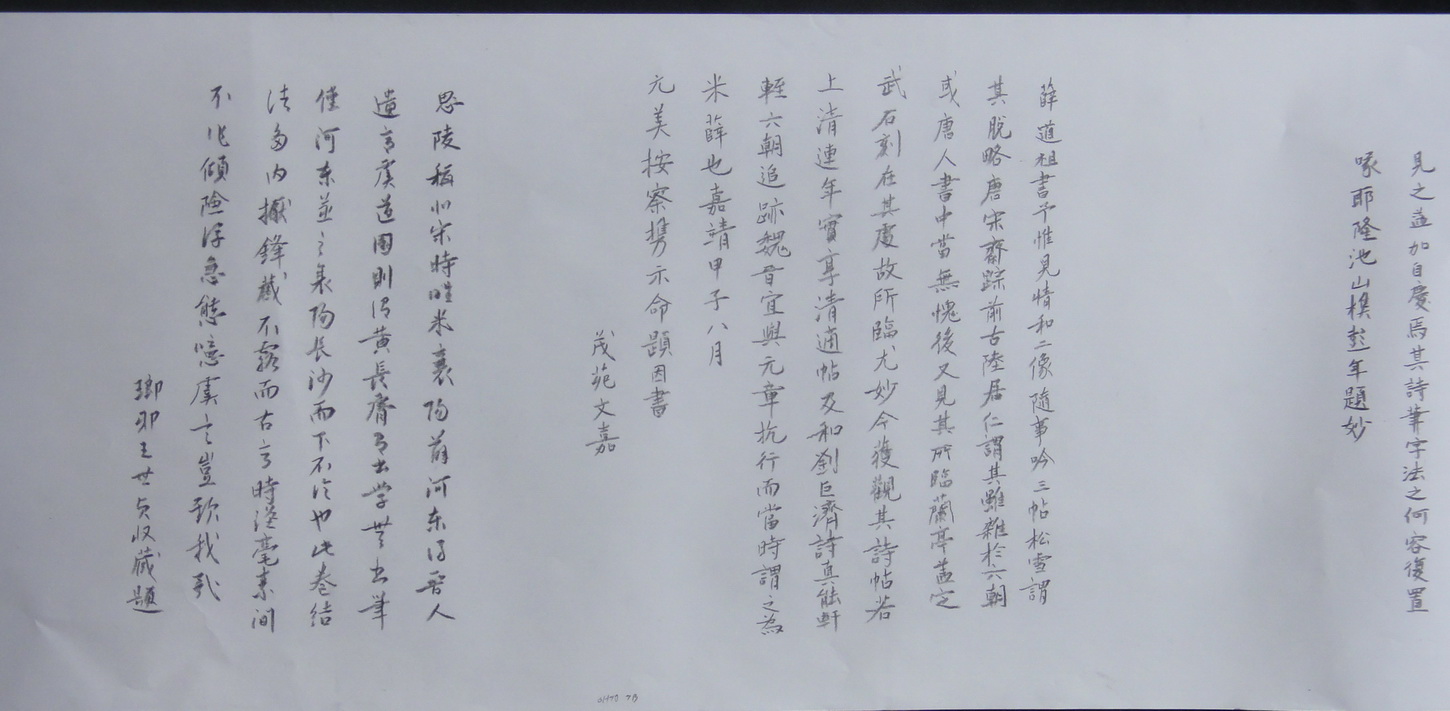 見之益加自慶焉其詩葦字法之何容復置
喙耶隆池山樵彭年題妙
薛道祖書予惟見情和二像隨事吟三帖松雪謂
其脫略唐宋齋踪前古陸居仁謂其雖雜於六朝
或唐人書中當無愧後又見其所臨蘭亭蓋定
武石刻在其處故所臨尤妙今獲觀其詩帖若
上清連年實享清適帖及和劉巨濟詩真能軒
輊六朝追跡魏晉宜與元章抗行而當時謂之為
米薛也嘉靖甲子八月
元美按察携示命題因書
茂苑文嘉
思陵稱北宋時唯米襄陽薛河东得晉人
遺言虞道園則謂黃長睿書學無書筆
僅河东並之襄陽長沙而下不论也此卷结
法多内擫鋒藏不露而古意時溢毫素间
不作傾險浮急態噫虞言豈欺我哉
瑯邪王世贞收藏題